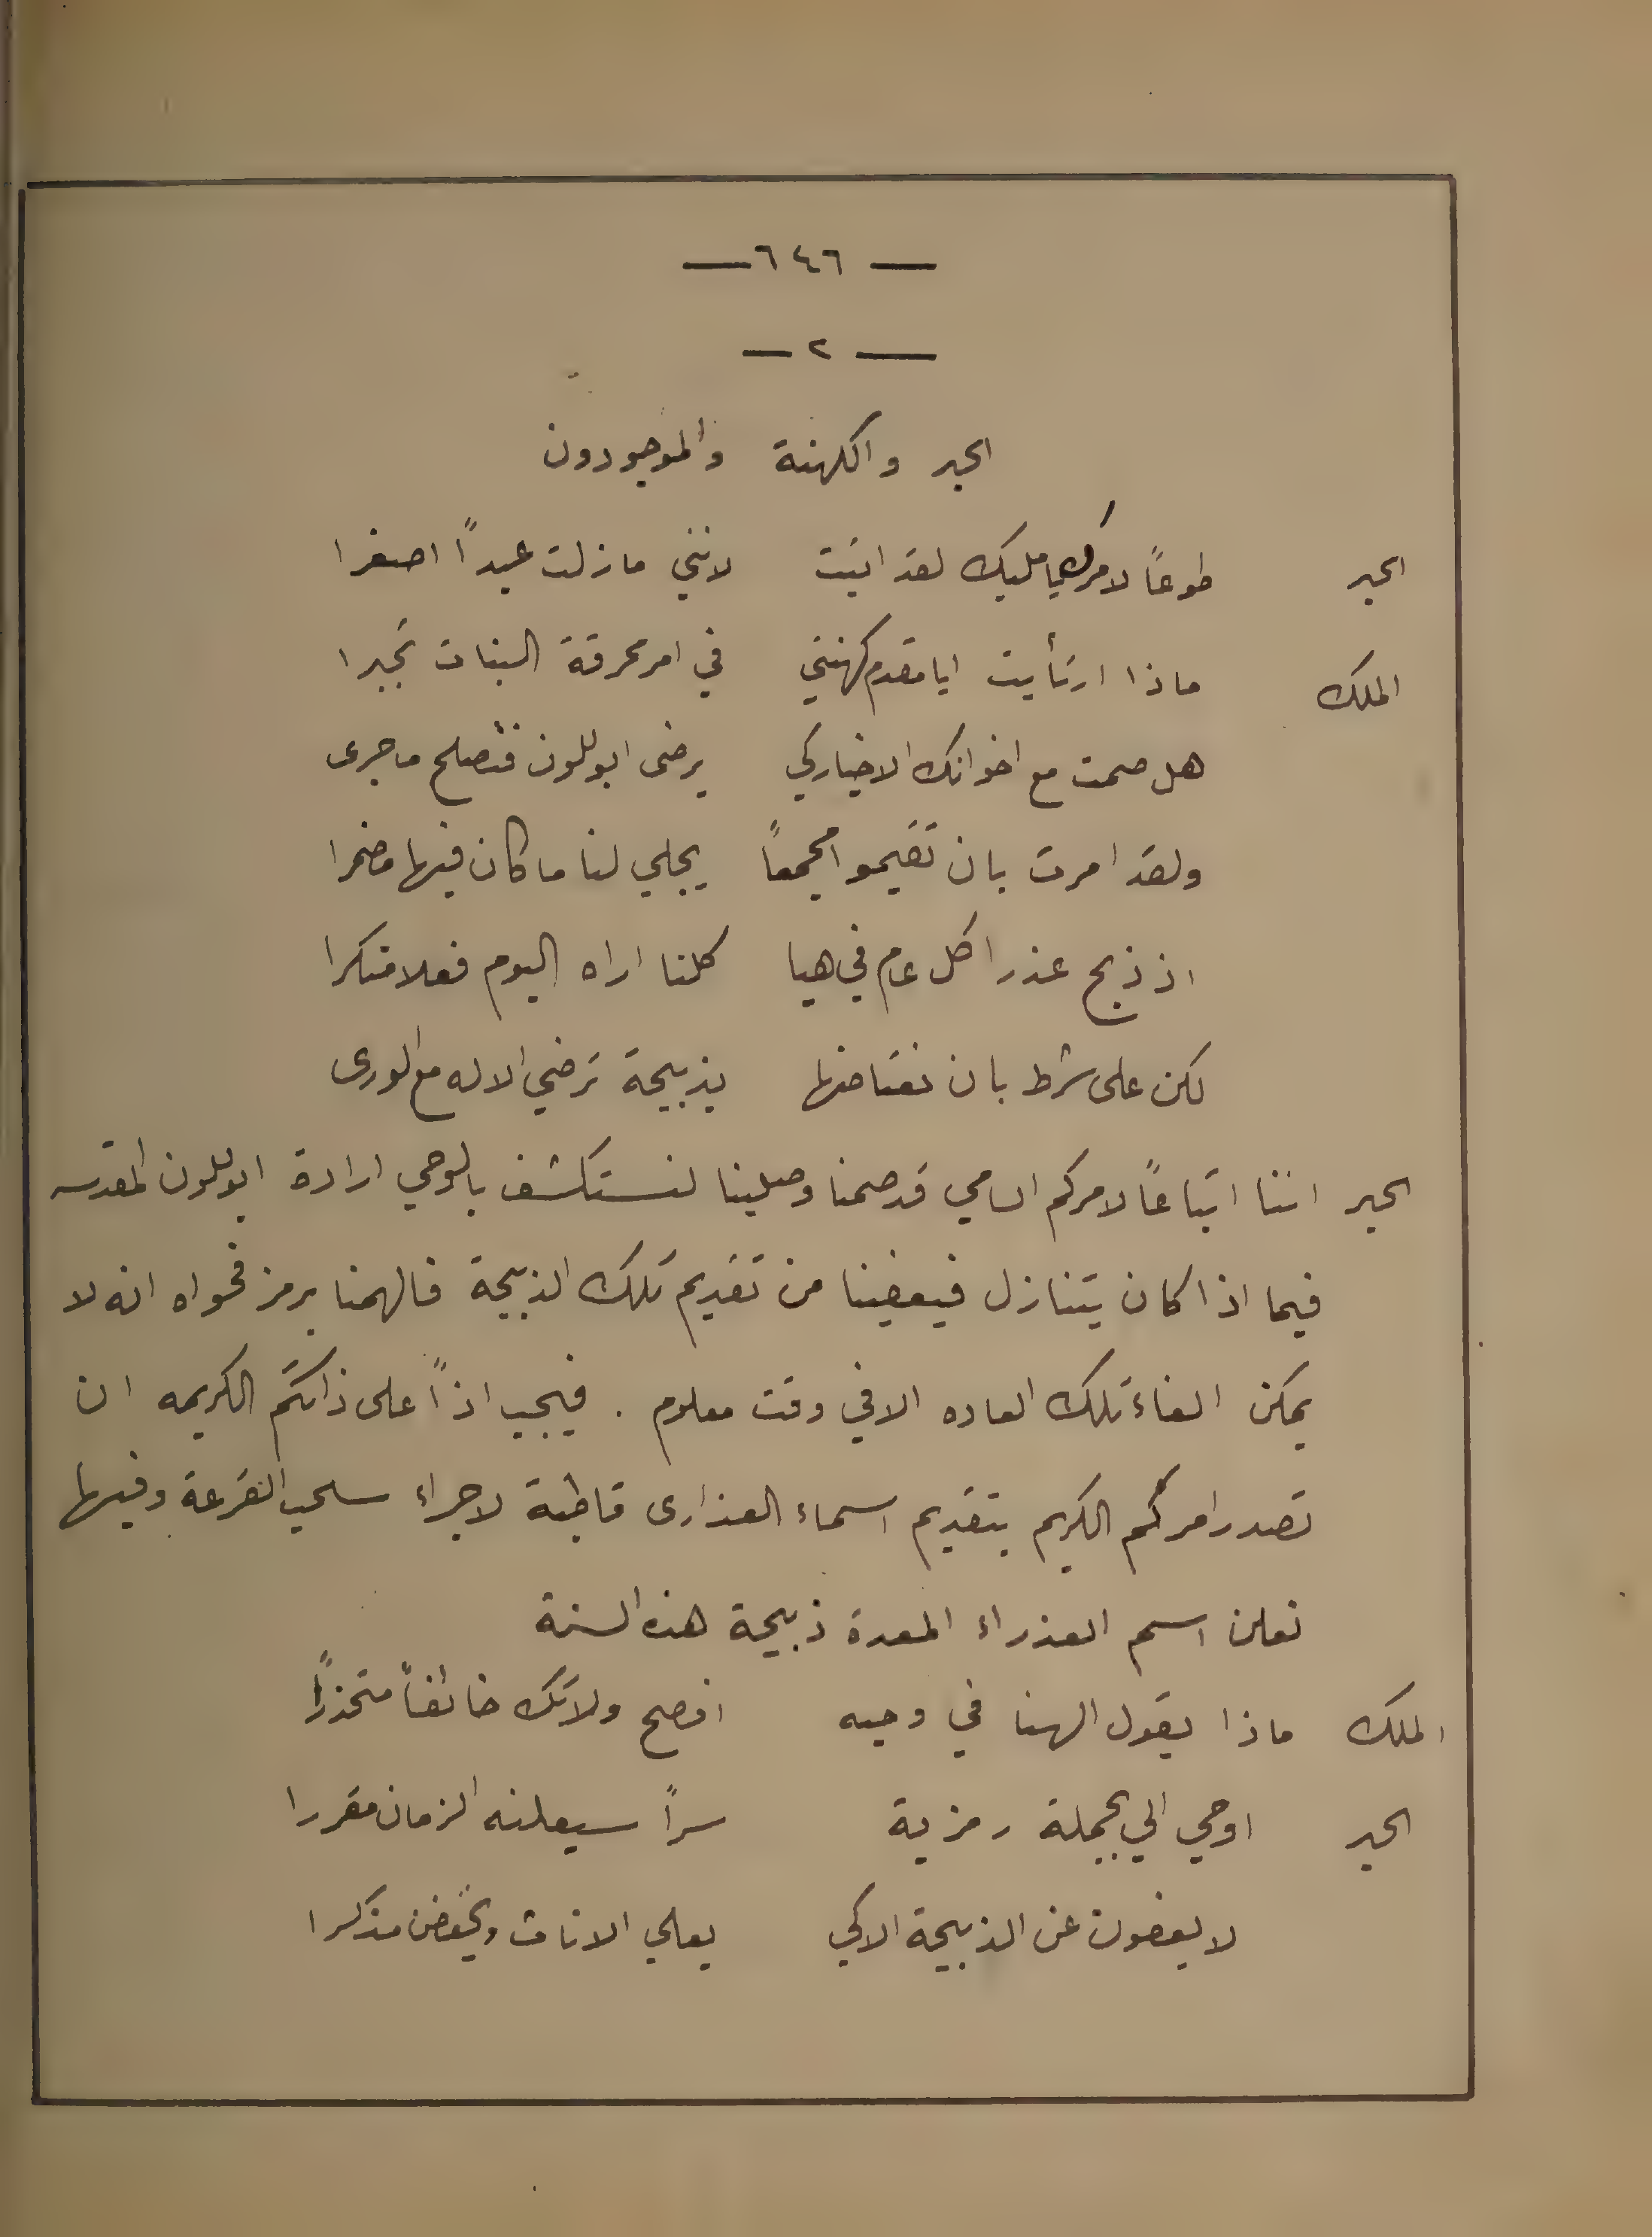 — ٦٤٦ —
— ٢ —
الحبر والكهنة والموجودون
الحبر طوعاً لامرك يا مليك لقد اتيت لانني ما زلت عبداً اصغرا
الملك ماذا ارتأيت ايا مقدم كهنتي في امر محرقة البنات تجبرا
هل صمت مع اخوانك الاخيار كي يرضى ابوللون فتصلح ما جرى
ولقد امرت بان تقيموا مجمعاً يجلي لنا ما كان فيها مضمرا
اذ ذبح عذرا كل عام في هيا كلنا اراه اليوم فعلا منكرا
لكن على شرط بان نعتاضها بذبيحة ترضي الاله مع الورى
الحبر اننا اتباعاً لامركم السامي قد صمنا وصلينا لنستكشف بالوحي ارادة ابوللون المقدسه
فيما اذا كان يتنازل فيعفينا من تقديم تلك الذبيحة فالهمنا برمز فحواه انه لا
يمكن الغاء تلك العاده الا في وقت معلوم . فيجب اذاً على ذاتكم الكريمه ان
تصدر امركم الكريم بتقديم اسماء العذارى قاطبة لاجراء سحب القرعة وفيها
نعلن اسم العذراء المعدة ذبيحة هذه السنة
الملك ماذا يقول الهنا في وحيه افصح ولا تك خائفاً متحذراً
الحبر اوحي الي بجملة رمزية سراً سيعلنه الزمان مقررا
لا يعفون عن الذبيحة الا كي يعلي الاناث ويخفض مذكرا